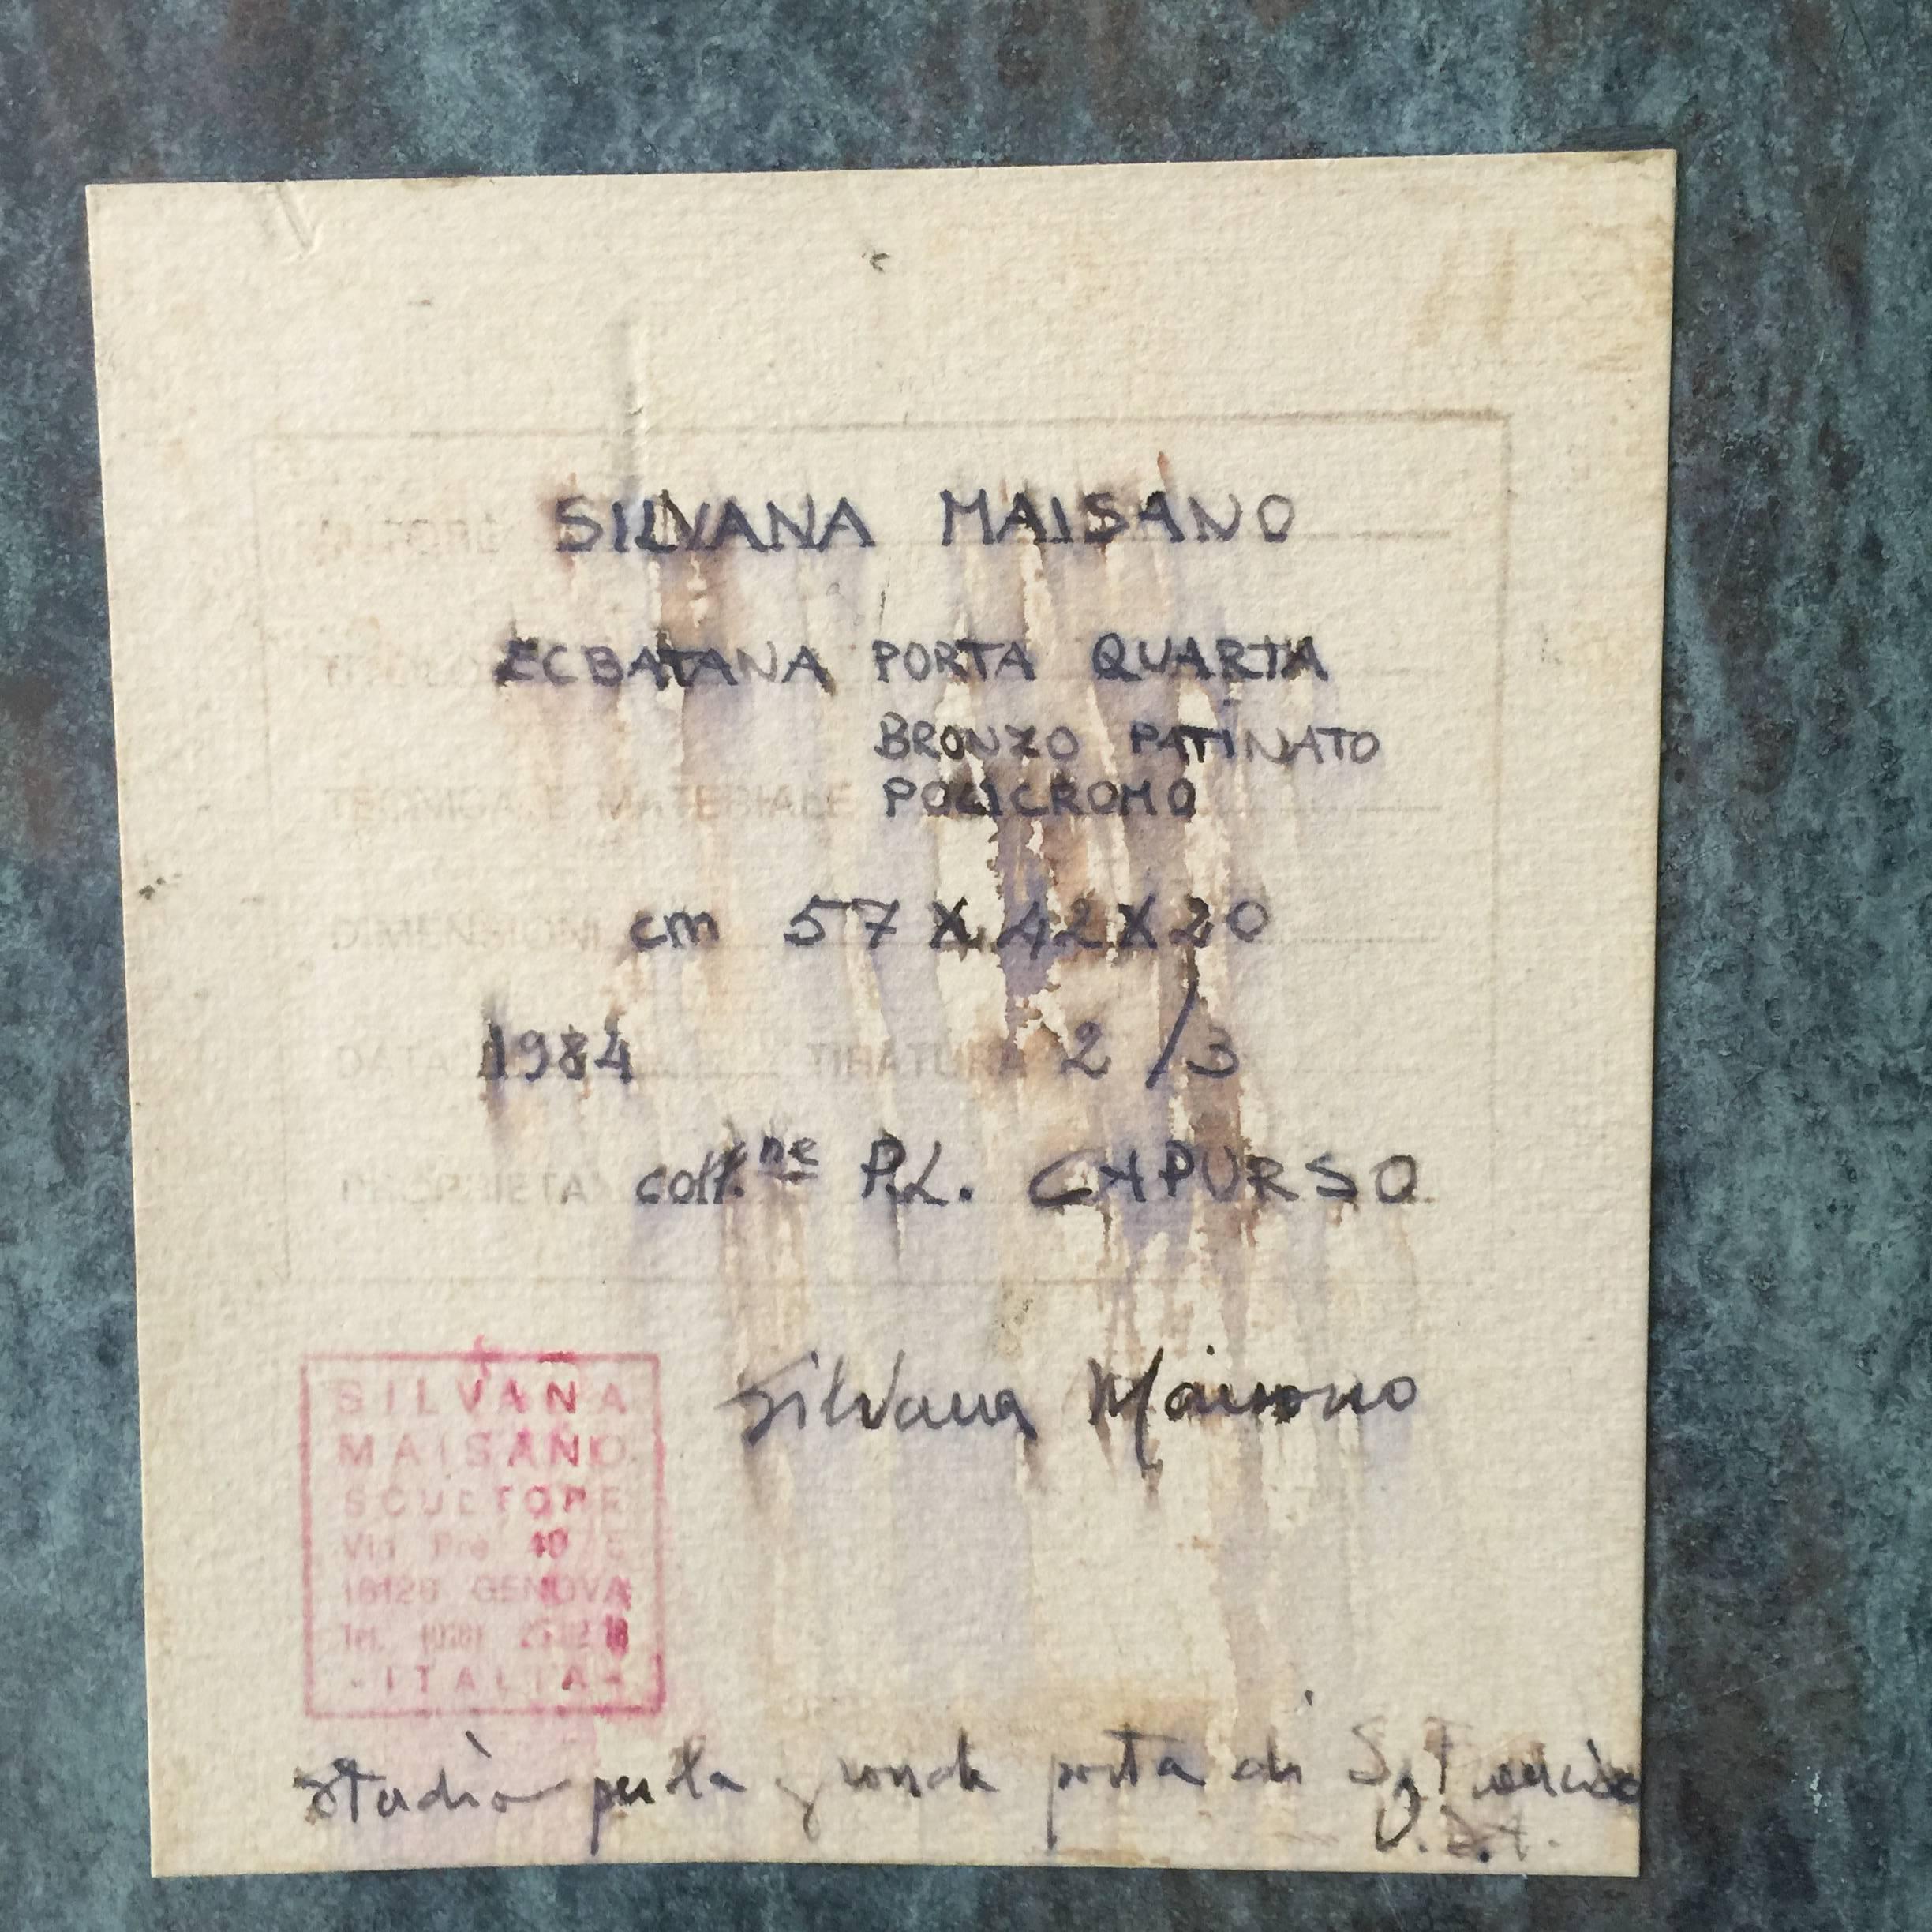 AUTORE SILVANA MAISANO
TITOLO ECBATANA PORTA QUARTA
BRONZO PATINATO
TECNICA E MATERIALE POLICROMO
DIMENSIONI cm 57 X 42 X 20
DATA 1984 TIRATURA 2/3
PROPRIETA' coll.ne P.L. CAPURSO
Silvana Maisano
SILVANA
MAISANO
SCULTORE
Via Prè 40
16126 GENOVA
Tel. (010)
-ITALIA-
studio per la grande porta di S. Francisco
U.S.A.